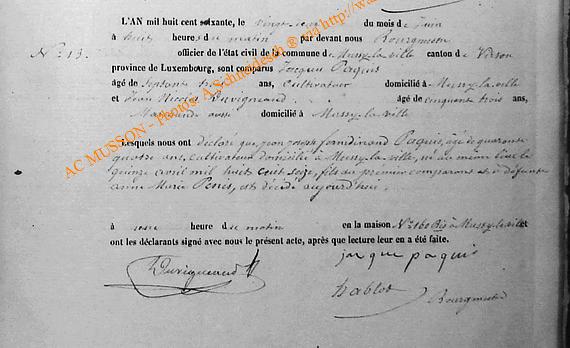 L'AN mil huit cent soixante, le vingt du mois de Juin
à huit heures du matin par devant nous Bourgmestre
N° 13. officier de l'état civil de la commune de Mussy-la-ville canton de Virton
province de Luxembourg, sont comparus Jacques Paquis
âgé de Septante trois ans, Cultivateur domicilié à Mussy-la-ville
et Jean Nicolas Duvigneaud âgé de cinquante trois ans,
aussi domicilié à Mussy-la-ville
Lesquels nous ont déclaré que, Jean Joseph Paquis, âgé de quarante
quatre ans, cultivateur domicilié à Mussy-la-ville, né au même lieu le
quinze avril mil huit cent seize, fils du premier comparant et de défunte
Anne Marie est décédé aujourd'hui
à heure du matin en la maison N° 160 Bis à Mussy-la-ville et
ont les déclarants signé avec nous le présent acte, après que lecture leur en a été faite.
jacque paquis
Duvigneaud
Bourgmestre
AC MUSSON - Photos: A.Schneider ® via http://wa